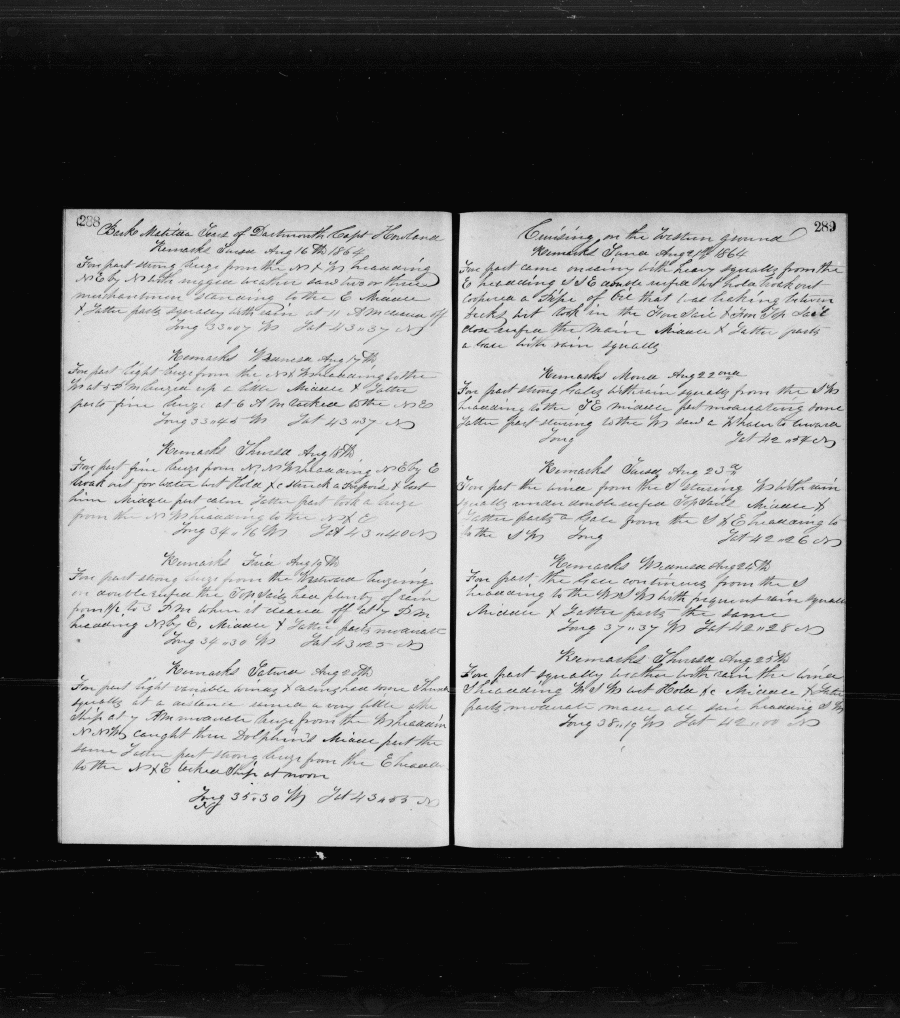 288
Bark Matilda Sears of Dartmouth Capt Howland
Remarks Tuesd Aug 16th 1864
Fore part strong breeze from the N & W headding
N E by N with rugged weather saw two or three
merchantmen standing to the E Middle
& Latter parts squally with rain at 11 A M cleared off
Long 33..07 W Lat 43..37 N
Remarks Wednesd Aug 17th
Fore part light breeze from the N & W headding to the
W at 5 P M breezed up a little Middle & Latter
parts fine breeze at 6 A M tacked to the N E
Long 33..45 W Lat 43..37 N
Remarks Thursd Aug 18th
Fore part fine breeze from N N W headding N E by E
broak out for water but Hold &c struck a & lost
him Middle part calm Latter part took a breeze
from the N W headding to the N & E
Long 34..16 W Lat 43..40 N
Remarks Frid Aug 19th
Fore part strong breeze from the Westward breezeing
on double reefed the Top Sails had plenty of rain
from 1/2 to 3 P M when it cleared off at 7 P M
headding N by E, Middle & Latter parts moderate
Long 34..30 W Lat 43..25 N
Remarks Saturd Aug 20th
Fore part light variable winds & calm had some Thunder
squalls at a distance rained a very little
Ship at 7 P M moderate breeze from the W headdin
N N W caught three Dolphins Middle part the
same Latter part strong breeze from the E headdin
to the N & E tacked Ship at noon
Long 35..30 W Lat 43..55 N
289
Cruising on the Western ground
Remarks Sund Aug 21st 1864
Fore part came on rainy with heavy squalls from the
E headding S S E double reefed but hold broak out
coopered a Stripe of Oil that was leaking between
Decks but took in the Fore Sail & Fore Top Sail
close reefed the Main Middle & Latter parts
a Gale with rain squally
Remarks Mond Aug 22ond
Fore part strong Gales with rain squally from the S W
headding to the S E middle part moderating some
Latter part steering to the W saw a Whaler to leward
Long Lat 42..54 N
Remarks Tuesd Aug 23d
Fore part the wind from the S steering W with rain
squally under double reefed Top Sails Middle &
Latter parts a Gale from the S & E headding to
to the S W Long Lat 42..26 N
Remarks Wednesd Aug 24th
Fore part the Gale continues from the S
headding to the W S W with frequent rain squalls
Middle & Latter parts the same
Long 37..37 W Lat 42..28 N
Remarks Thursd Aug 25th
Fore part squally weather with rain the wind
S headding W S W but Hold &c Middle & Latter
parts moderate made all sail headding S W
Long 38..19 W Lat 42..00 N